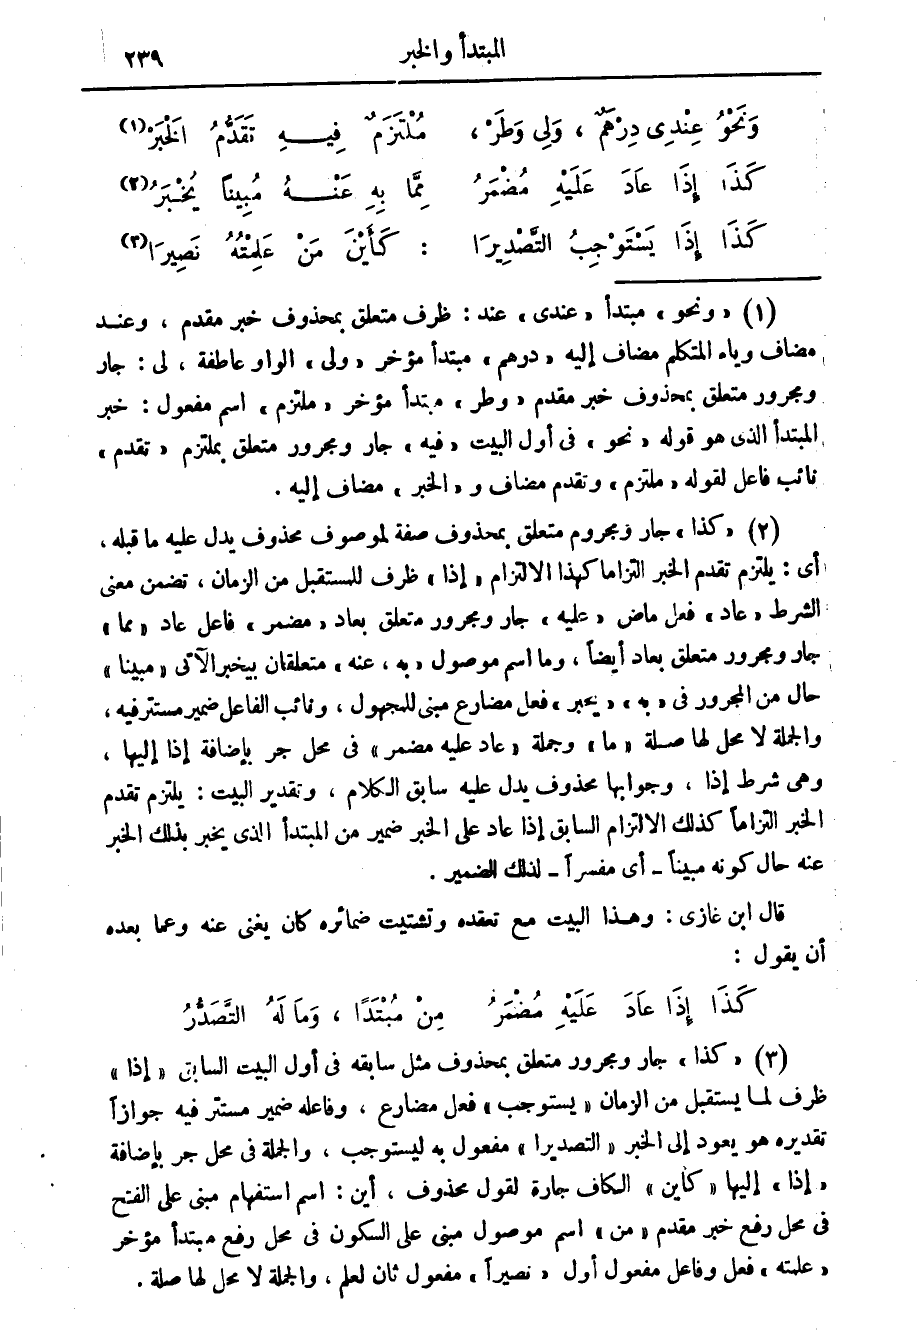 المبتدأ والخبر ٢٣٩
وَنَحْوُ عِنْدِى دِرْهَمٌ ، وَلِى وَطَرْ ، مُلْتَزَمٌ فِيهِ تَقَدُّمُ الْخَبَرْ (١)
كَذَا إِذَا عَادَ عَلَيْهِ مُضْمَرُ مِمَّا بِهِ عَنْهُ مُبِيناً يُخْبَرُ (٢)
كَذَا إِذَا يَسْتَوْجِبُ التَّصْدِيرَا : كَأَيْنَ مَنْ عَلِمْتَهُ نَصِيرَا (٣)
(١) « ونحو » مبتدأ « عندى » عند : ظرف متعلق بمحذوف خبر مقدم ، وعند
مضاف وياء المتكلم مضاف إليه « درهم » مبتدأ مؤخر « ولى » الواو عاطفة ، لى : جار
ومجرور متعلق بمحذوف خبر مقدم « وطر » مبتدأ مؤخر « ملتزم » اسم مفعول : خبر
المبتدأ الذى هو قوله « نحو » فى أول البيت « فيه » جار ومجرور متعلق بملتزم « تقدم »
نائب فاعل لقوله « ملتزم » وتقدم مضاف و « الخبر » مضاف إليه .
(٢) « كذا » جار ومجروم متعلق بمحذوف صفة لموصوف محذوف يدل عليه ما قبله ،
أى : يلتزم تقدم الخبر التزاما كهذا الالتزام « إذا » ظرف للمستقبل من الزمان ، تضمن معنى
الشرط « عاد » فعل ماض « عليه » جار ومجرور متعلق بعاد « مضمر » فاعل عاد « مما »
جار ومجرور متعلق بعاد أيضاً ، وما اسم موصول « به ، عنه » متعلقان بيخبر الآتى « مبينا »
حال من المجرور فى « به » « يخبر » فعل مضارع مبنى للمجهول ، ونائب الفاعل ضمير مستتر فيه ،
والجملة لا محل لها صلة « ما » وجملة « عاد عليه مضمر » فى محل جر بإضافة إذا إليها ،
وهى شرط إذا ، وجوابها محذوف يدل عليه سابق الكلام ، وتقدير البيت : يلتزم تقدم
الخبر التزاماً كذلك الالتزام السابق إذا عاد على الخبر ضمير من المبتدأ الذى يخبر بذلك الخبر
عنه حال كونه مبيناً ـ أى مفسراً ـ لذلك الضمير .
قال ابن غازى : وهذا البيت مع تعقده وتشتيت ضمائره كان يغنى عنه وعما بعده
أن يقول :
كَذَا إِذَا عَادَ عَلَيْهِ مُضْمَرُ مِنْ مُبْتَدًا ، وَمَا لَهُ التَّصَدُّرُ
(٣) « كذا » جار ومجرور متعلق بمحذوف مثل سابقه فى أول البيت السابق « إذا »
ظرف لما يستقبل من الزمان « يستوجب » فعل مضارع ، وفاعله ضمير مستتر فيه جوازاً
تقديره هو يعود إلى الخبر « التصديرا » مفعول به ليستوجب ، والجملة فى محل جر بإضافة
« إذا » إليها « كأين » الكاف جارة لقول محذوف ، أين : اسم استفهام مبنى على الفتح
فى محل رفع خبر مقدم « من » اسم موصول مبنى على السكون فى محل رفع مبتدأ مؤخر
« علمته » فعل وفاعل مفعول أول « نصيراً » مفعول ثان لعلم ، والجملة لا محل لها صلة .